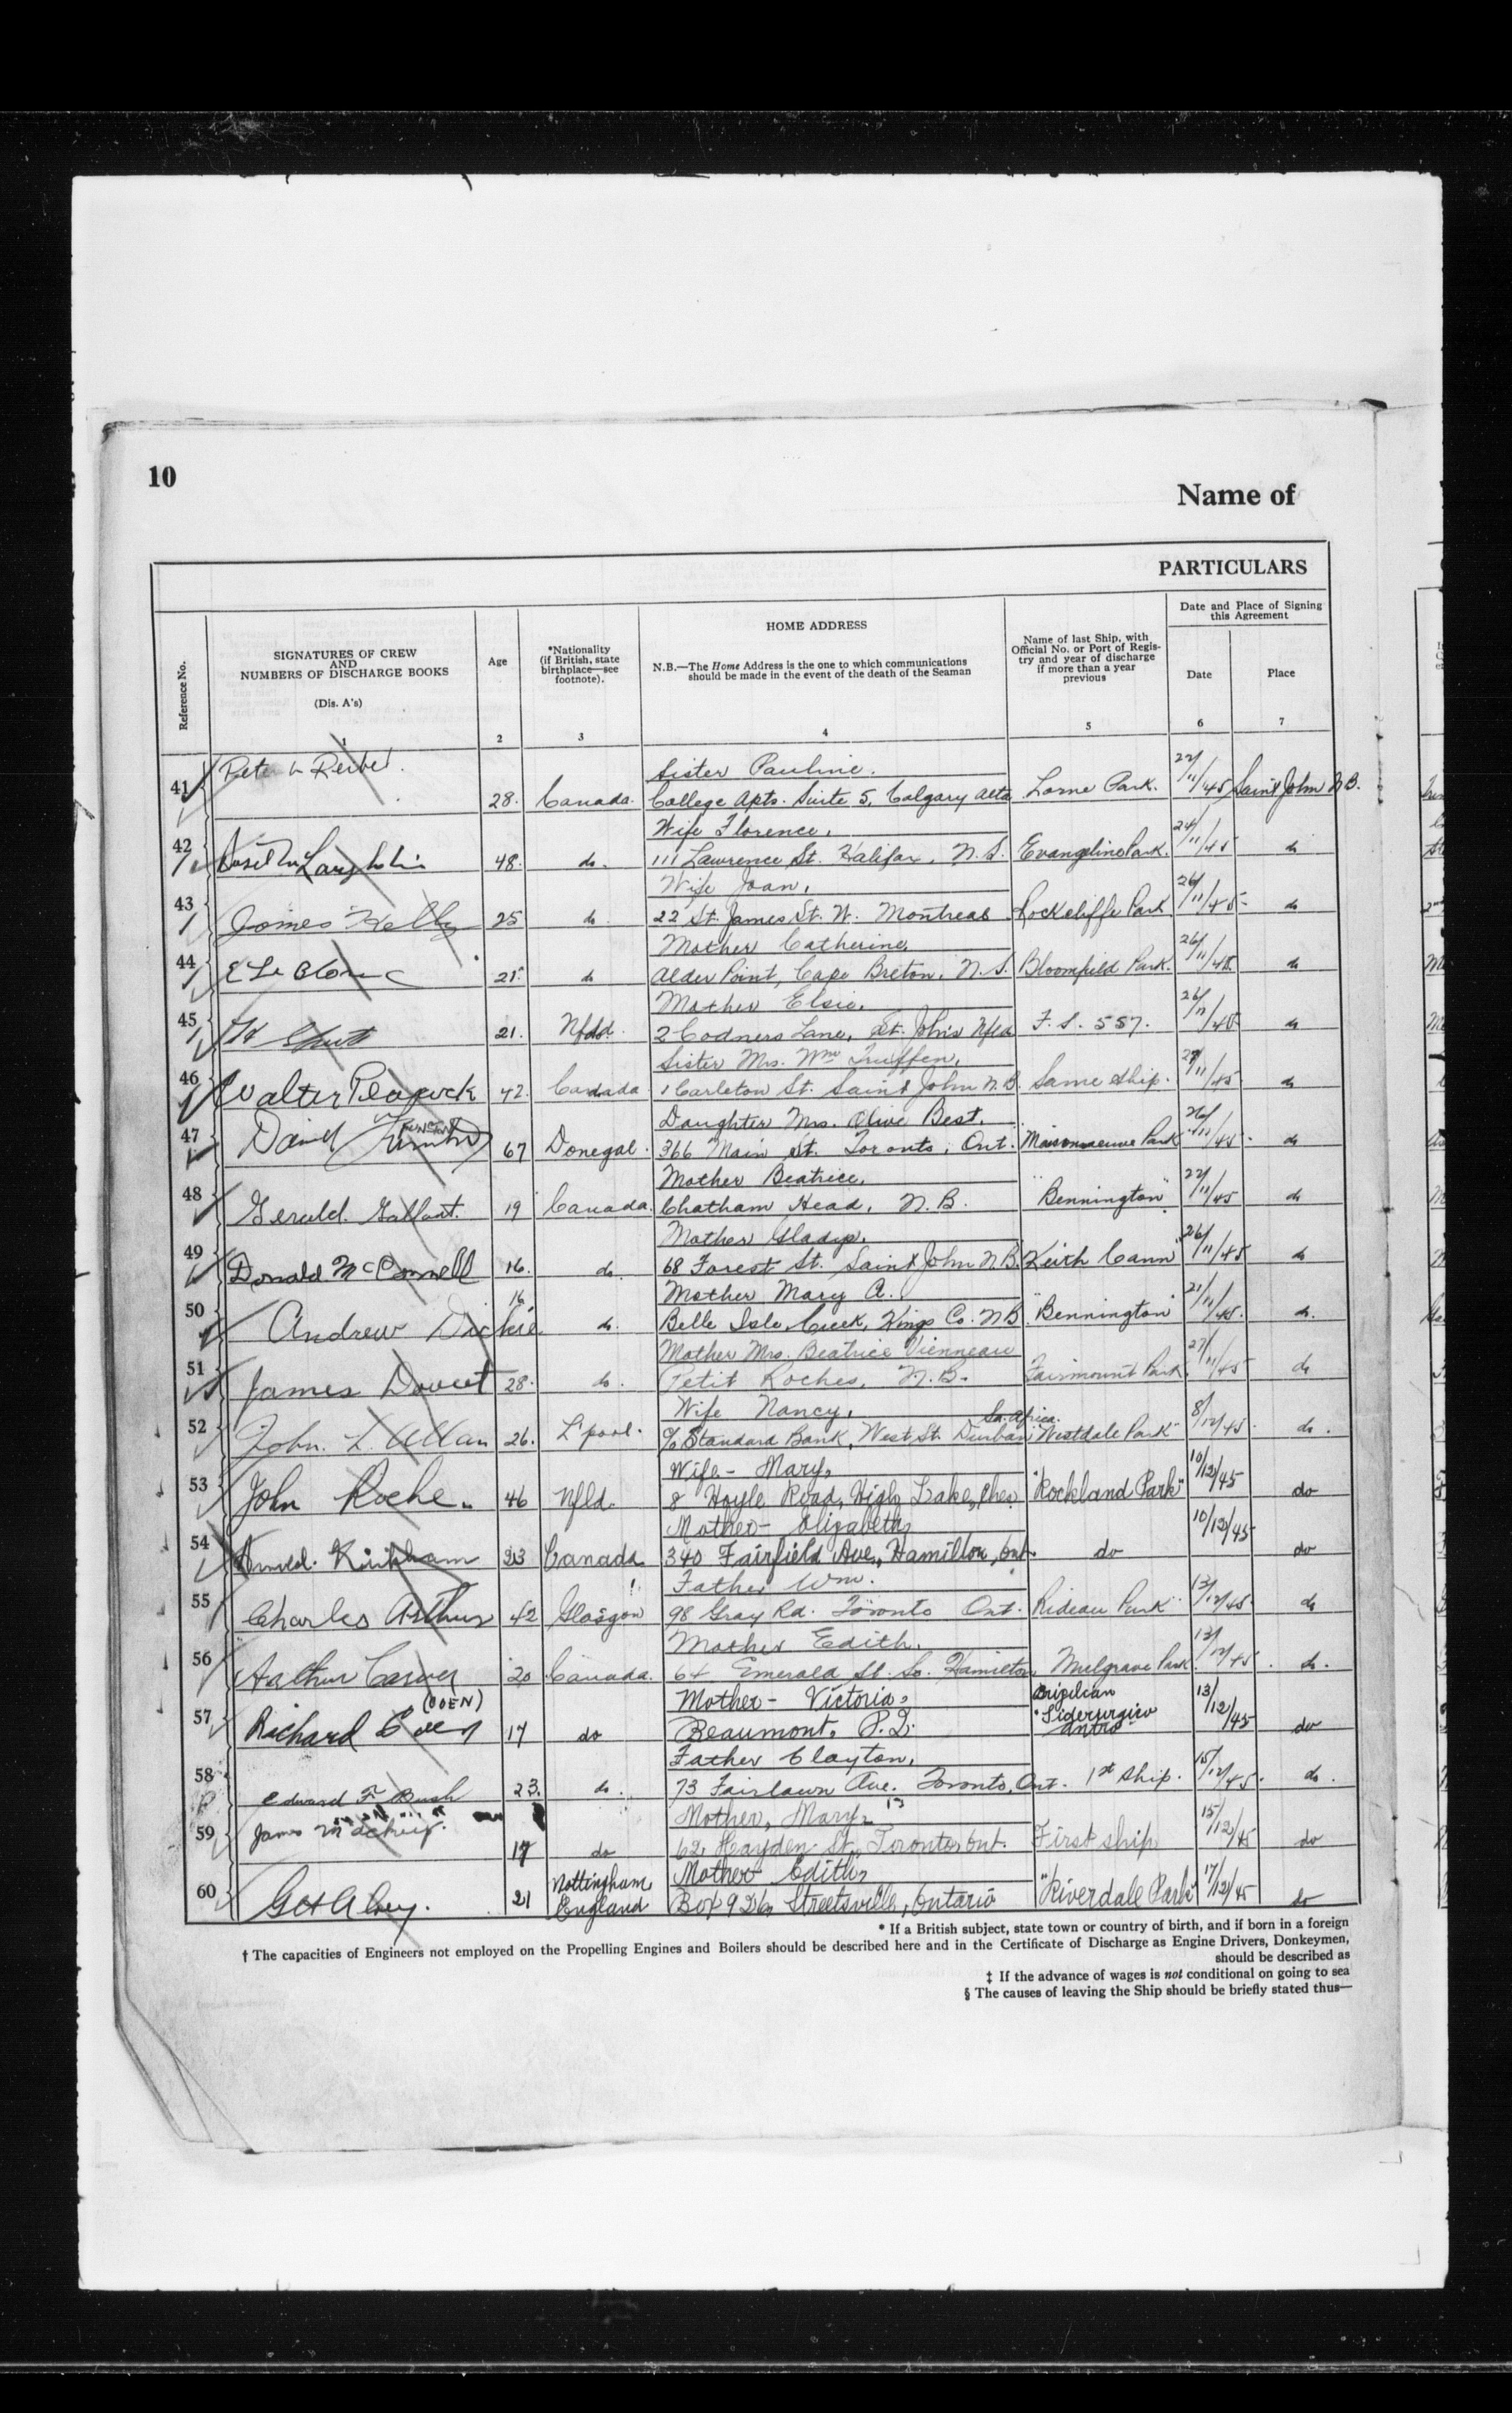 10
Name of
PARTICULARS
Reference No.
SIGNATURES OF CREW
AND
NUMBERS OF DISCHARGE BOOKS
(Dis. A's)
1
Age
2
*Nationality
(if British, state
birthplace—see
footnote).
3
HOME ADDRESS
N.B.—The Home Address is the one to which communications
should be made in the event of the death of the Seaman
4
Name of last Ship, with
Official No. or Port of Regis-
try and year of discharge
if more than a year
previous
5
Date and Place of Signing
this Agreement
Date
6
Place
7
41 Peter Sister Pauline.
28. Canada. College Apts. Suite 5, Calgary Alta Lorne Park. 22/11/45 Saint John N.B.
Wife Florence.
42 48. do. 111 Lawrence St. Halifax, N.S. Evangeline Park. 24/11/45 do
Wife Joan,
43 James Kelly 25 do 22 St. James St. W. Montreal Rockcliffe Park 26/11/45 do
Mother Catherine
44 E Le Blanc 21. do Alder Point, Cape Breton, N.S. Bloomfield Park. 26/11/45 do
Mother Elsie.
45 21. Nfld. 2 Codners Lane, St. John's Nfld F.S. 557. 26/11/45 do
Sister Mrs. Wm
46 Walter Peacock 42. Canada 1 Carleton St. Saint John N.B. Same Ship. 11/45 do
Daughter Mrs. Olive Best.
47 David 67 Donegal. 366 Main St. Toronto, Ont. Maisonneuve Park 26/11/45 do
Mother Beatrice.
48 Gerald. Gallant. 19 Canada. Chatham Head, N.B. "Bennington" 22/11/45 do
Mother Gladys.
49 Donald McConnell 16. do 68 Forest St. Saint John N.B. "Keith Cann" 26/11/45 do
Mother Mary A.
50 Andrew Dickie 16 do. Belle Isle Creek, Kings Co. N.B. "Bennington" 21/11/45. do.
Mother Mrs. Beatrice Vienneau
51 James Doucet 28. do. Petit Roches, N.B. Fairmount Park 27/11/45 do
Wife Nancy, So. Africa.
52 John. L. Allan 26. L'pool. c/o Standard Bank, West St. Durban "Westdale Park" 8/12/45 do.
Wife - Mary,
53 John Roche. 46 Nfld. 8 Hoyle Road, "Rockland Park" 10/12/45 do
Mother - Elizabeth,
54 Kirkham 23 Canada 340 Fairfield Ave., Hamilton, Ont. do 10/12/45 do
Father Wm.
55 Charles Arthur 42 Glasgow 98 Gray Rd. Toronto Ont. Rideau Park 13/12/45 do
Mother Edith.
56 Arthur Carver 20 Canada. 64 Emerald St. So. Hamilton Mulgrave Park 13/12/45. do.
(ODEN) Mother - Victoria,
57 Richard 17 do Beaumont, P.Q. 13/12/45 do
Father Clayton,
58 Edward F Bush 23. do. 73 Fairlawn Ave. Toronto, Ont. 1st Ship. 15/12/45. do.
Mother, Mary,
59 James 17 do 62, Hayden St, Toronto, Ont. First ship 15/12/45 do
Mother Edith,
60 21 Nottingham England Box 926, Streetsville, Ontario "Riverdale Park" 17/12/45 do
* If a British subject, state town or country of birth, and if born in a foreign
† The capacities of Engineers not employed on the Propelling Engines and Boilers should be described here and in the Certificate of Discharge as Engine Drivers, Donkeymen,
should be described as
‡ If the advance of wages is not conditional on going to sea
§ The causes of leaving the Ship should be briefly stated thus—